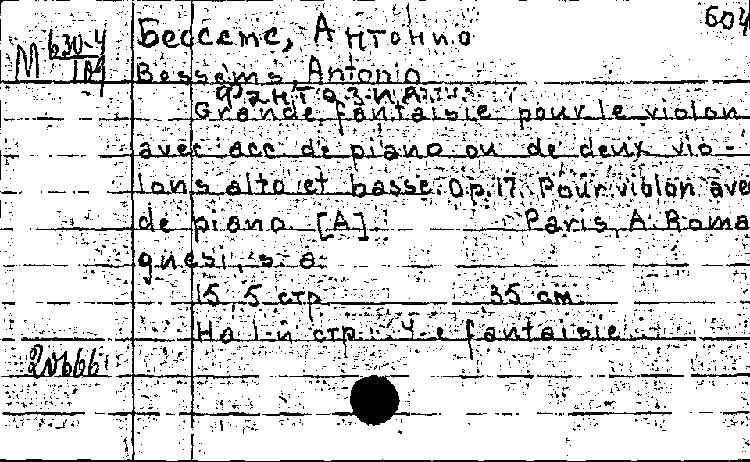 604
М 630-4
184
Бессемс, Антонио
Bessems, Antonio
Фантазия
Grande fantaisie pour le violon
avec acc de piano ou de deux vio-
lons alto et basse. Op. 17. Pour violon ave
de piano [A] Paris, A. Roma
gnesi, s. a.
15, 5 стр 35 см
На 1-й стр.: 4-e fantaisie
20666